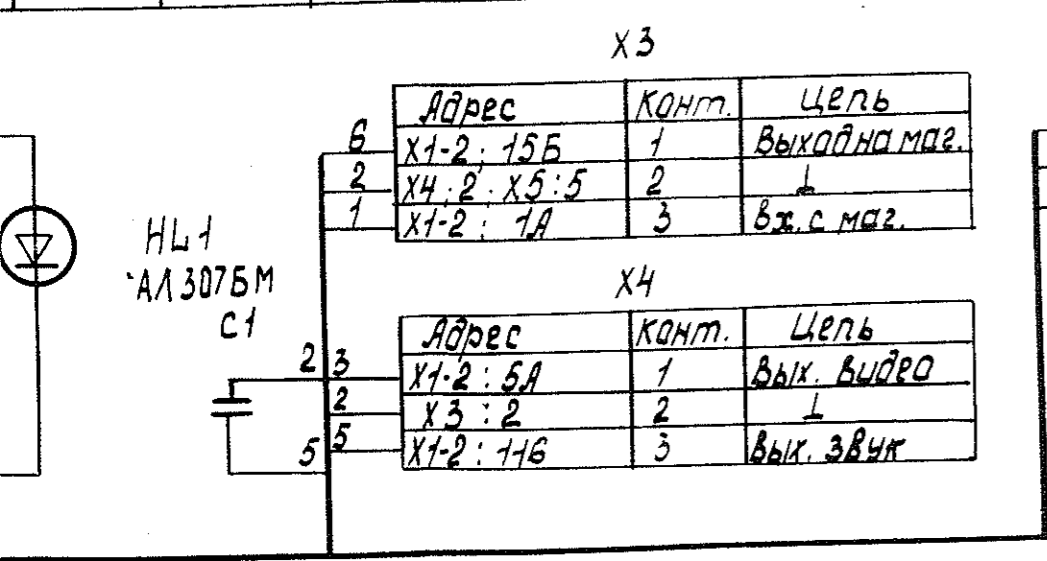 X3
Адрес Конт. Цепь
6 X1-2 : 15Б 1 Выход на маг.
2 X4 : 2 . X5 : 5 2 ⊥
1 X1-2 : 1А 3 Вх. с маг.
HL1
АЛ307БМ
C1
X4
Адрес Конт. Цепь
2 3 X1-2 : 5А 1 Вых. видео
2 X3 : 2 2 ⊥
5 5 X1-2 : 11Б 3 Вых. звук